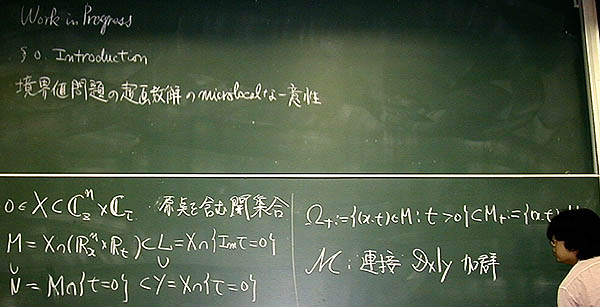 Work in Progress
§0. Introduction
境界値問題の超函数解のmicrolocalな一意性
0 ∈ X ⊂ ℂⁿ_z × ℂ_τ 原点を含む開集合
M = X∩(ℝⁿ_x × ℝ_t) ⊂ L = X∩{Im τ = 0}
∪ ∪
N = M∩{t=0} ⊂ Y = X∩{τ=0}
Ω₊ := {(x,t) ∈ M ; t > 0} ⊂ M₊ := {(x,t)
ℳ : 連接 𝒟x|y 加群